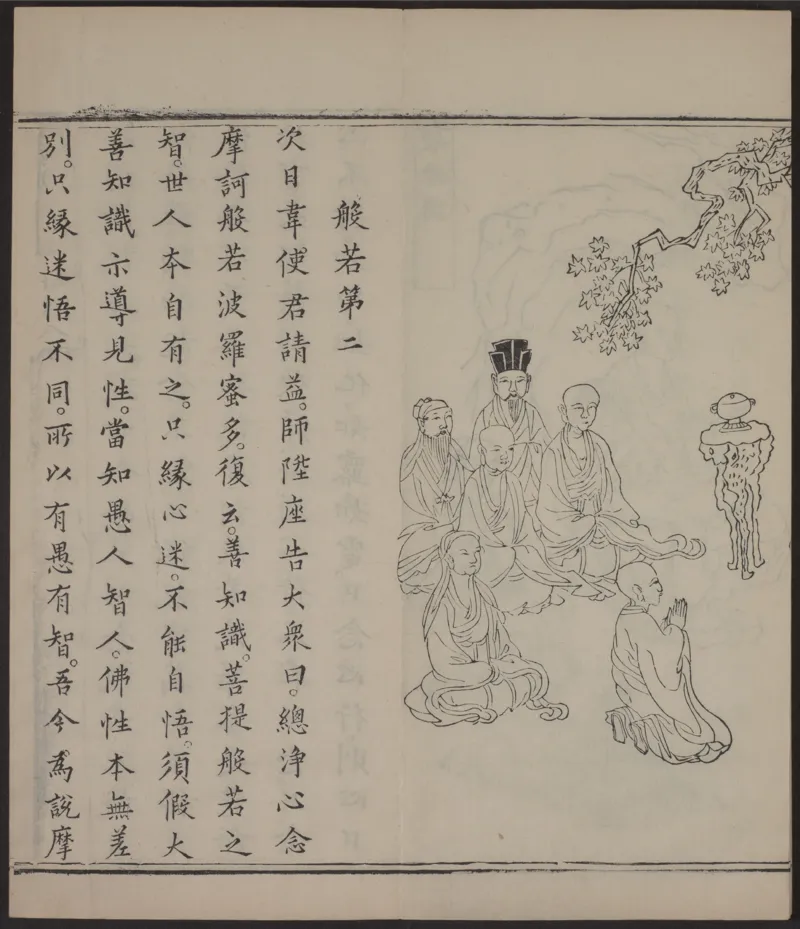 般若第二
次日韋使君請益。師陞座告大衆曰。總淨心念
摩訶般若波羅蜜多。復云。善知識。菩提般若之
智。世人本自有之。只緣心迷。不能自悟。須假大
善知識示導見性。當知愚人智人。佛性本無差
別。只緣迷悟不同。所以有愚有智。吾今為說摩